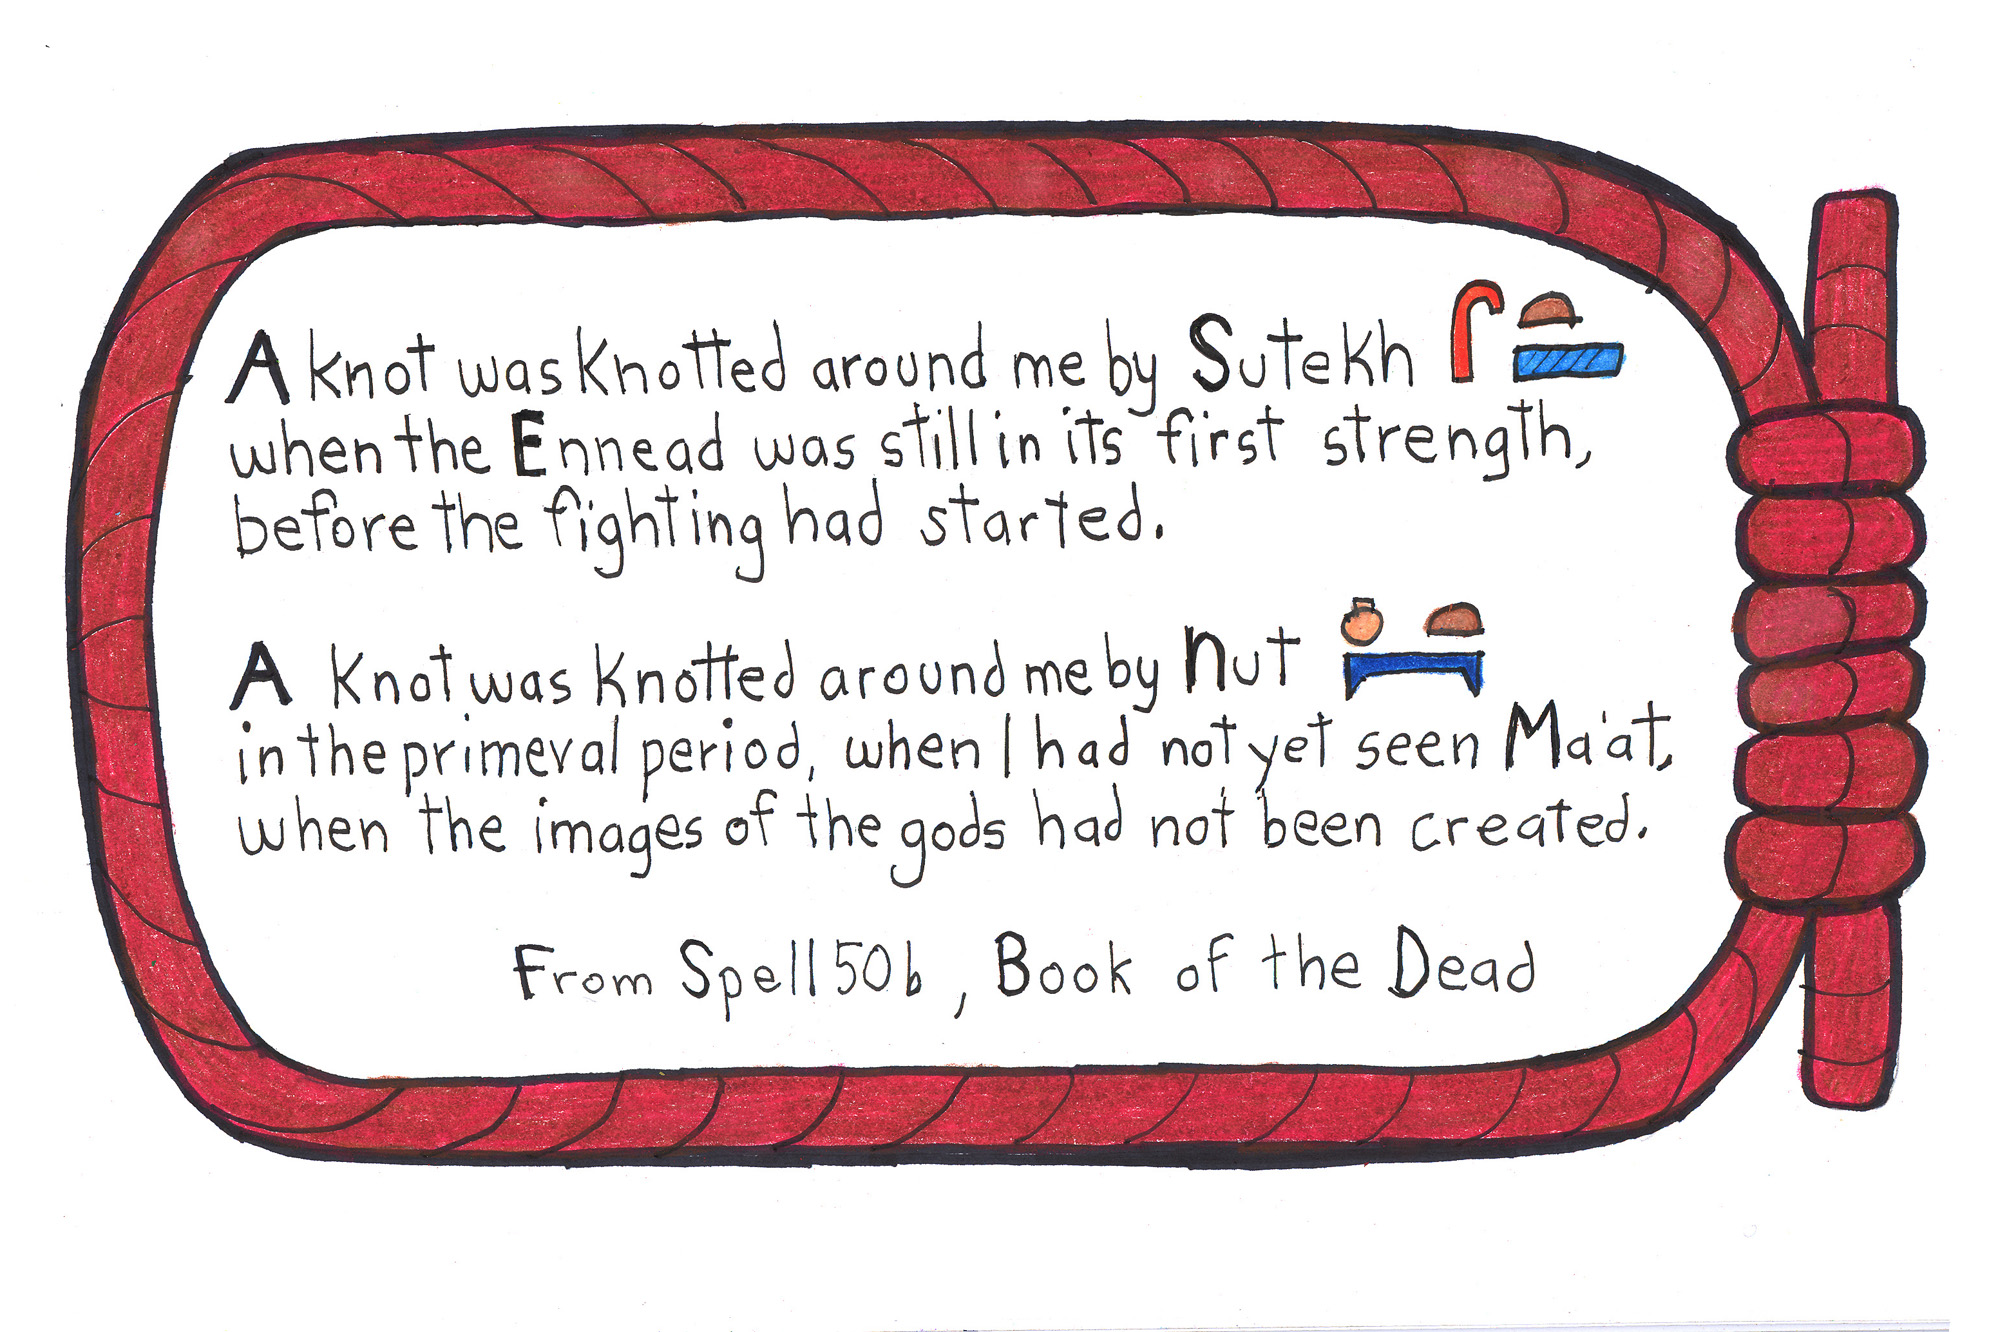 A knot was knotted around me by Sutekh 𓋴𓏏𓈙
when the Ennead was still in its first strength,
before the fighting had started.
A knot was knotted around me by nut 𓏌𓏏𓇯
in the primeval period, when I had not yet seen Ma'at,
when the images of the gods had not been created.
From Spell 50b, Book of the Dead